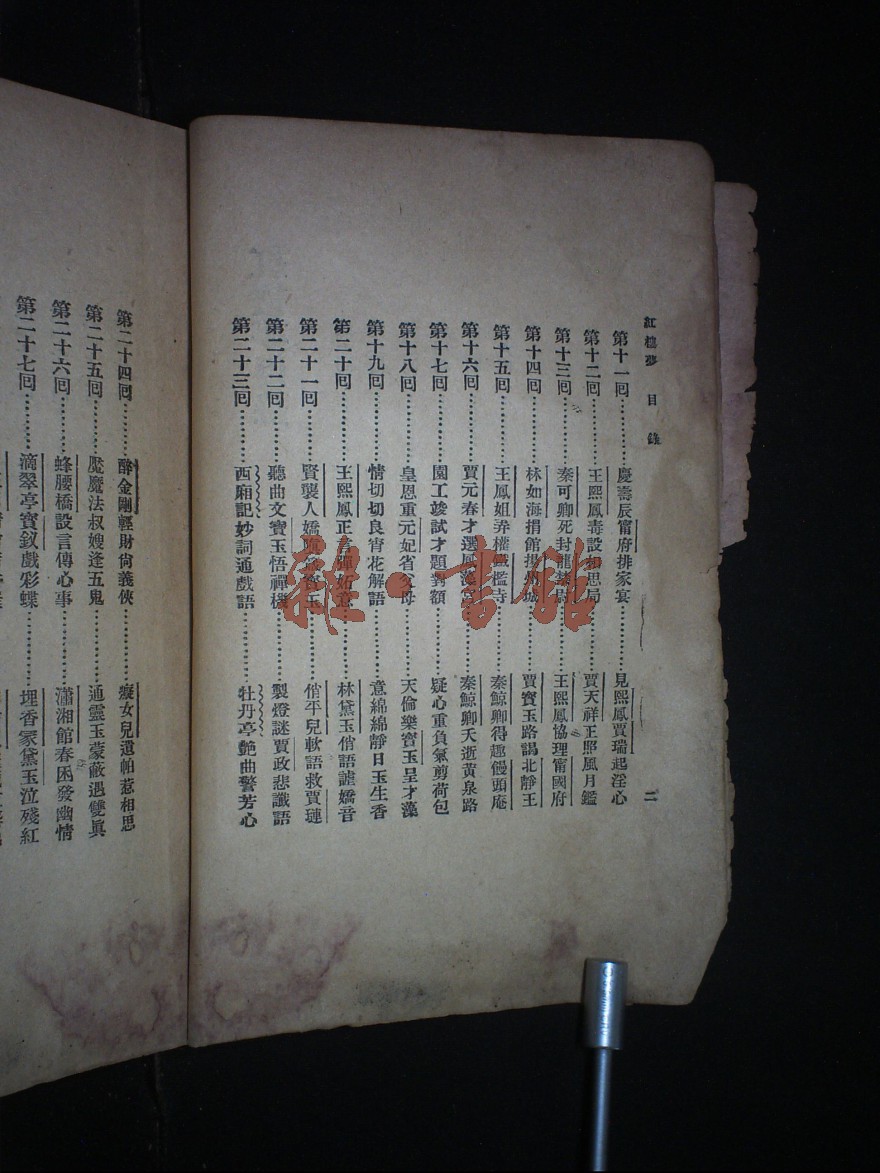 紅樓夢 目錄 二
第十一回………慶壽辰甯府排家宴………見熙鳳賈瑞起淫心
第十二回………王熙鳳毒設相思局………賈天祥正照風月鑑
第十三回………秦可卿死封龍禁尉………王熙鳳協理甯國府
第十四回………林如海捐館揚州城………賈寶玉路謁北靜王
第十五回………王鳳姐弄權鐵檻寺………秦鯨卿得趣饅頭庵
第十六回………賈元春才選鳳藻宮………秦鯨卿夭逝黃泉路
第十七回………園工竣試才題對額………疑心重負氣剪荷包
第十八回………皇恩重元妃省父母………天倫樂寶玉呈才藻
第十九回………情切切良宵花解語………意綿綿靜日玉生香
第二十回………王熙鳳正言彈妬意………林黛玉俏語謔嬌音
第二十一回………賢襲人嬌嗔箴寶玉………俏平兒軟語救賈璉
第二十二回………聽曲文寶玉悟禪機………製燈謎賈政悲讖語
第二十三回………西廂記妙詞通戲語………牡丹亭艷曲警芳心
第二十四回………醉金剛輕財尙義俠………癡女兒遺帕惹相思
第二十五回………魘魔法叔嫂逢五鬼………通靈玉蒙蔽遇雙眞
第二十六回………蜂腰橋設言傳心事………瀟湘館春困發幽情
第二十七回………滴翠亭寶釵戲彩蝶………埋香冢黛玉泣殘紅
雜·書館